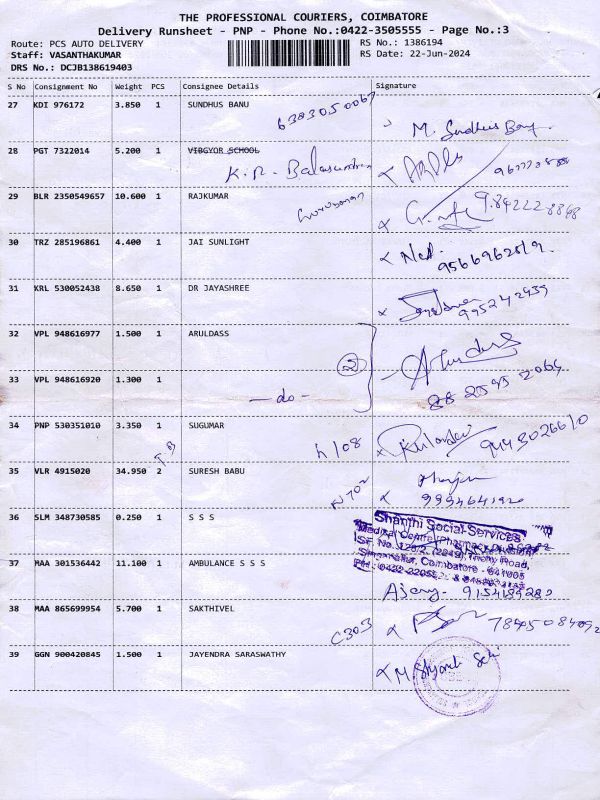 THE PROFESSIONAL COURIERS, COIMBATORE
Delivery Runsheet - PNP - Phone No.:0422-3505555 - Page No.:3
Route: PCS AUTO DELIVERY
RS No.: 1386194
Staff: VASANTHAKUMAR
RS Date: 22-Jun-2024
DRS No.: DCJB138619403
S No Consignment No Weight PCS Consignee Details Signature
27 KDI 976172 3.850 1 SUNDHUS BANU
6383050067
M. Sundhus Banu
28 PGT 7322014 5.200 1 VIBGYOR SCHOOL
K.R. Balasundram
29 BLR 2350549657 10.600 1 RAJKUMAR
9.842228868
30 TRZ 285196861 4.400 1 JAI SUNLIGHT
9566962819
31 KRL 530052438 8.650 1 DR JAYASHREE
995242939
32 VPL 948616977 1.500 1 ARULDASS
2
33 VPL 948616920 1.300 1
— do —
34 PNP 530351010 3.350 1 SUGUMAR
9443026610
35 VLR 4915020 34.950 2 SURESH BABU
36 SLM 348730585 0.250 1 S S S
Shanthi Social Services
Medical Centre (Pharmacy Division)
Trichy Road,
Singanallur, Coimbatore - 641005
37 MAA 301536442 11.100 1 AMBULANCE S S S
38 MAA 865699954 5.700 1 SAKTHIVEL
C303
7845084092
39 GGN 900420845 1.500 1 JAYENDRA SARASWATHY